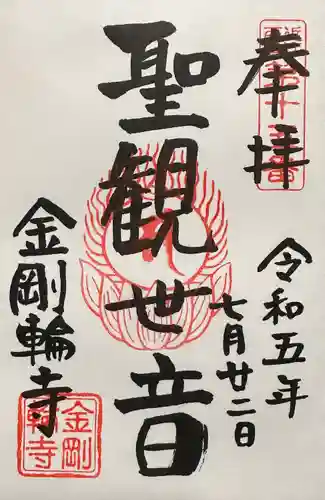 奉拝
令和五年
七月廿二日
聖観世音
金剛輪寺
金剛輪寺